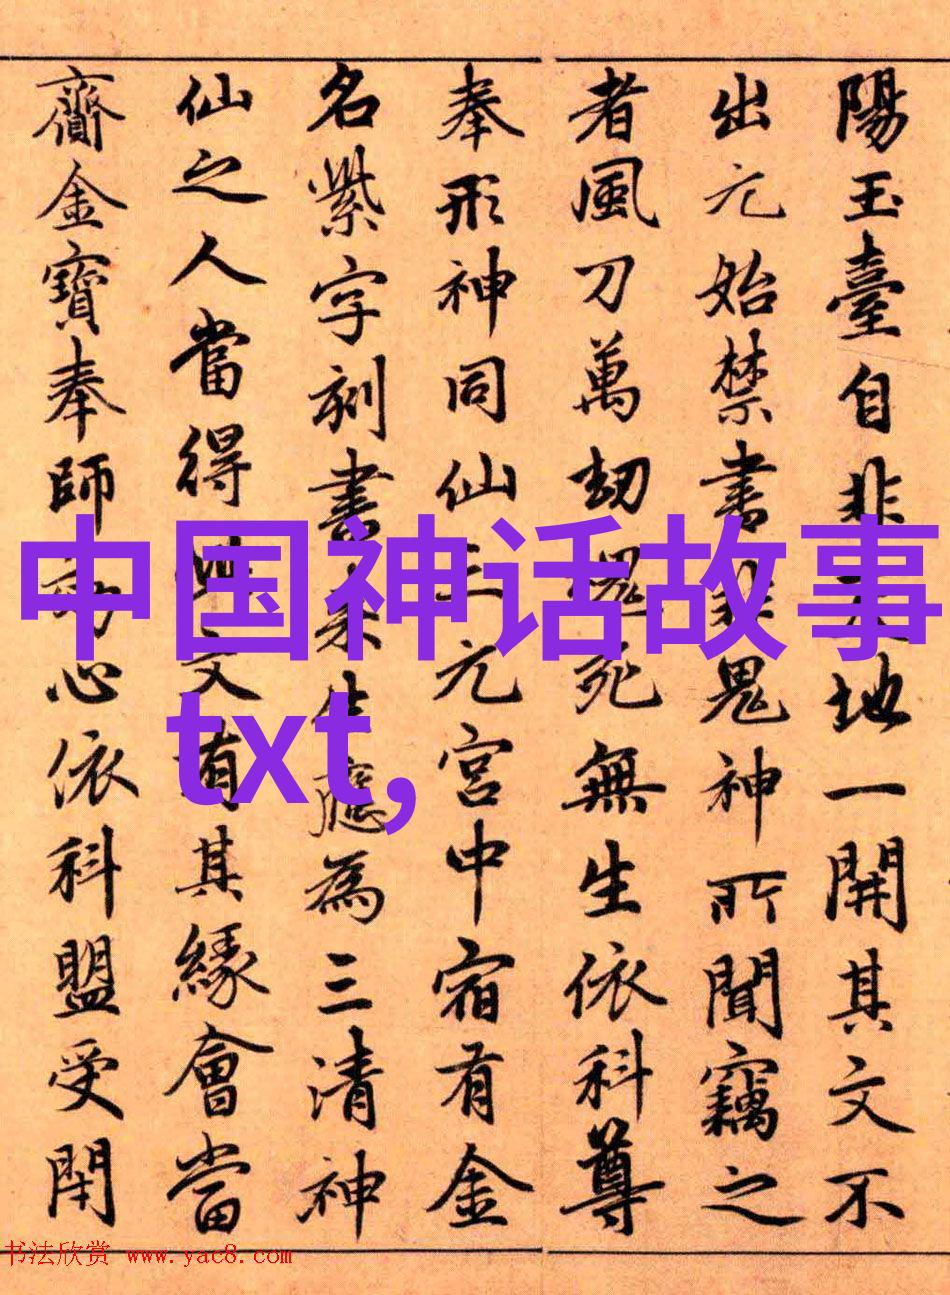 陽玉臺自非天地一開其文不
出元始禁書非鬼神所聞竊之
者風刀萬劫死無生依科尊
奉形神同仙三元宮中宿有金
名紫字刻書来生應為三清神
仙之人當得此文有其緣會當
齎金寶奉師心依科盟受閇
中国神话故事
txt,
书法欣赏 www.yac8.com